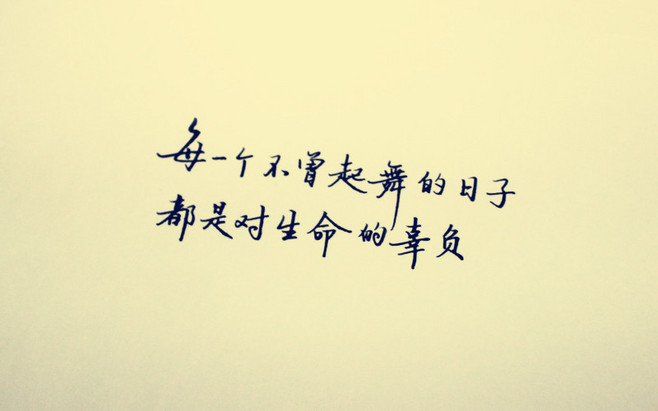 每一个不曾起舞的日子
都是对生命的辜负